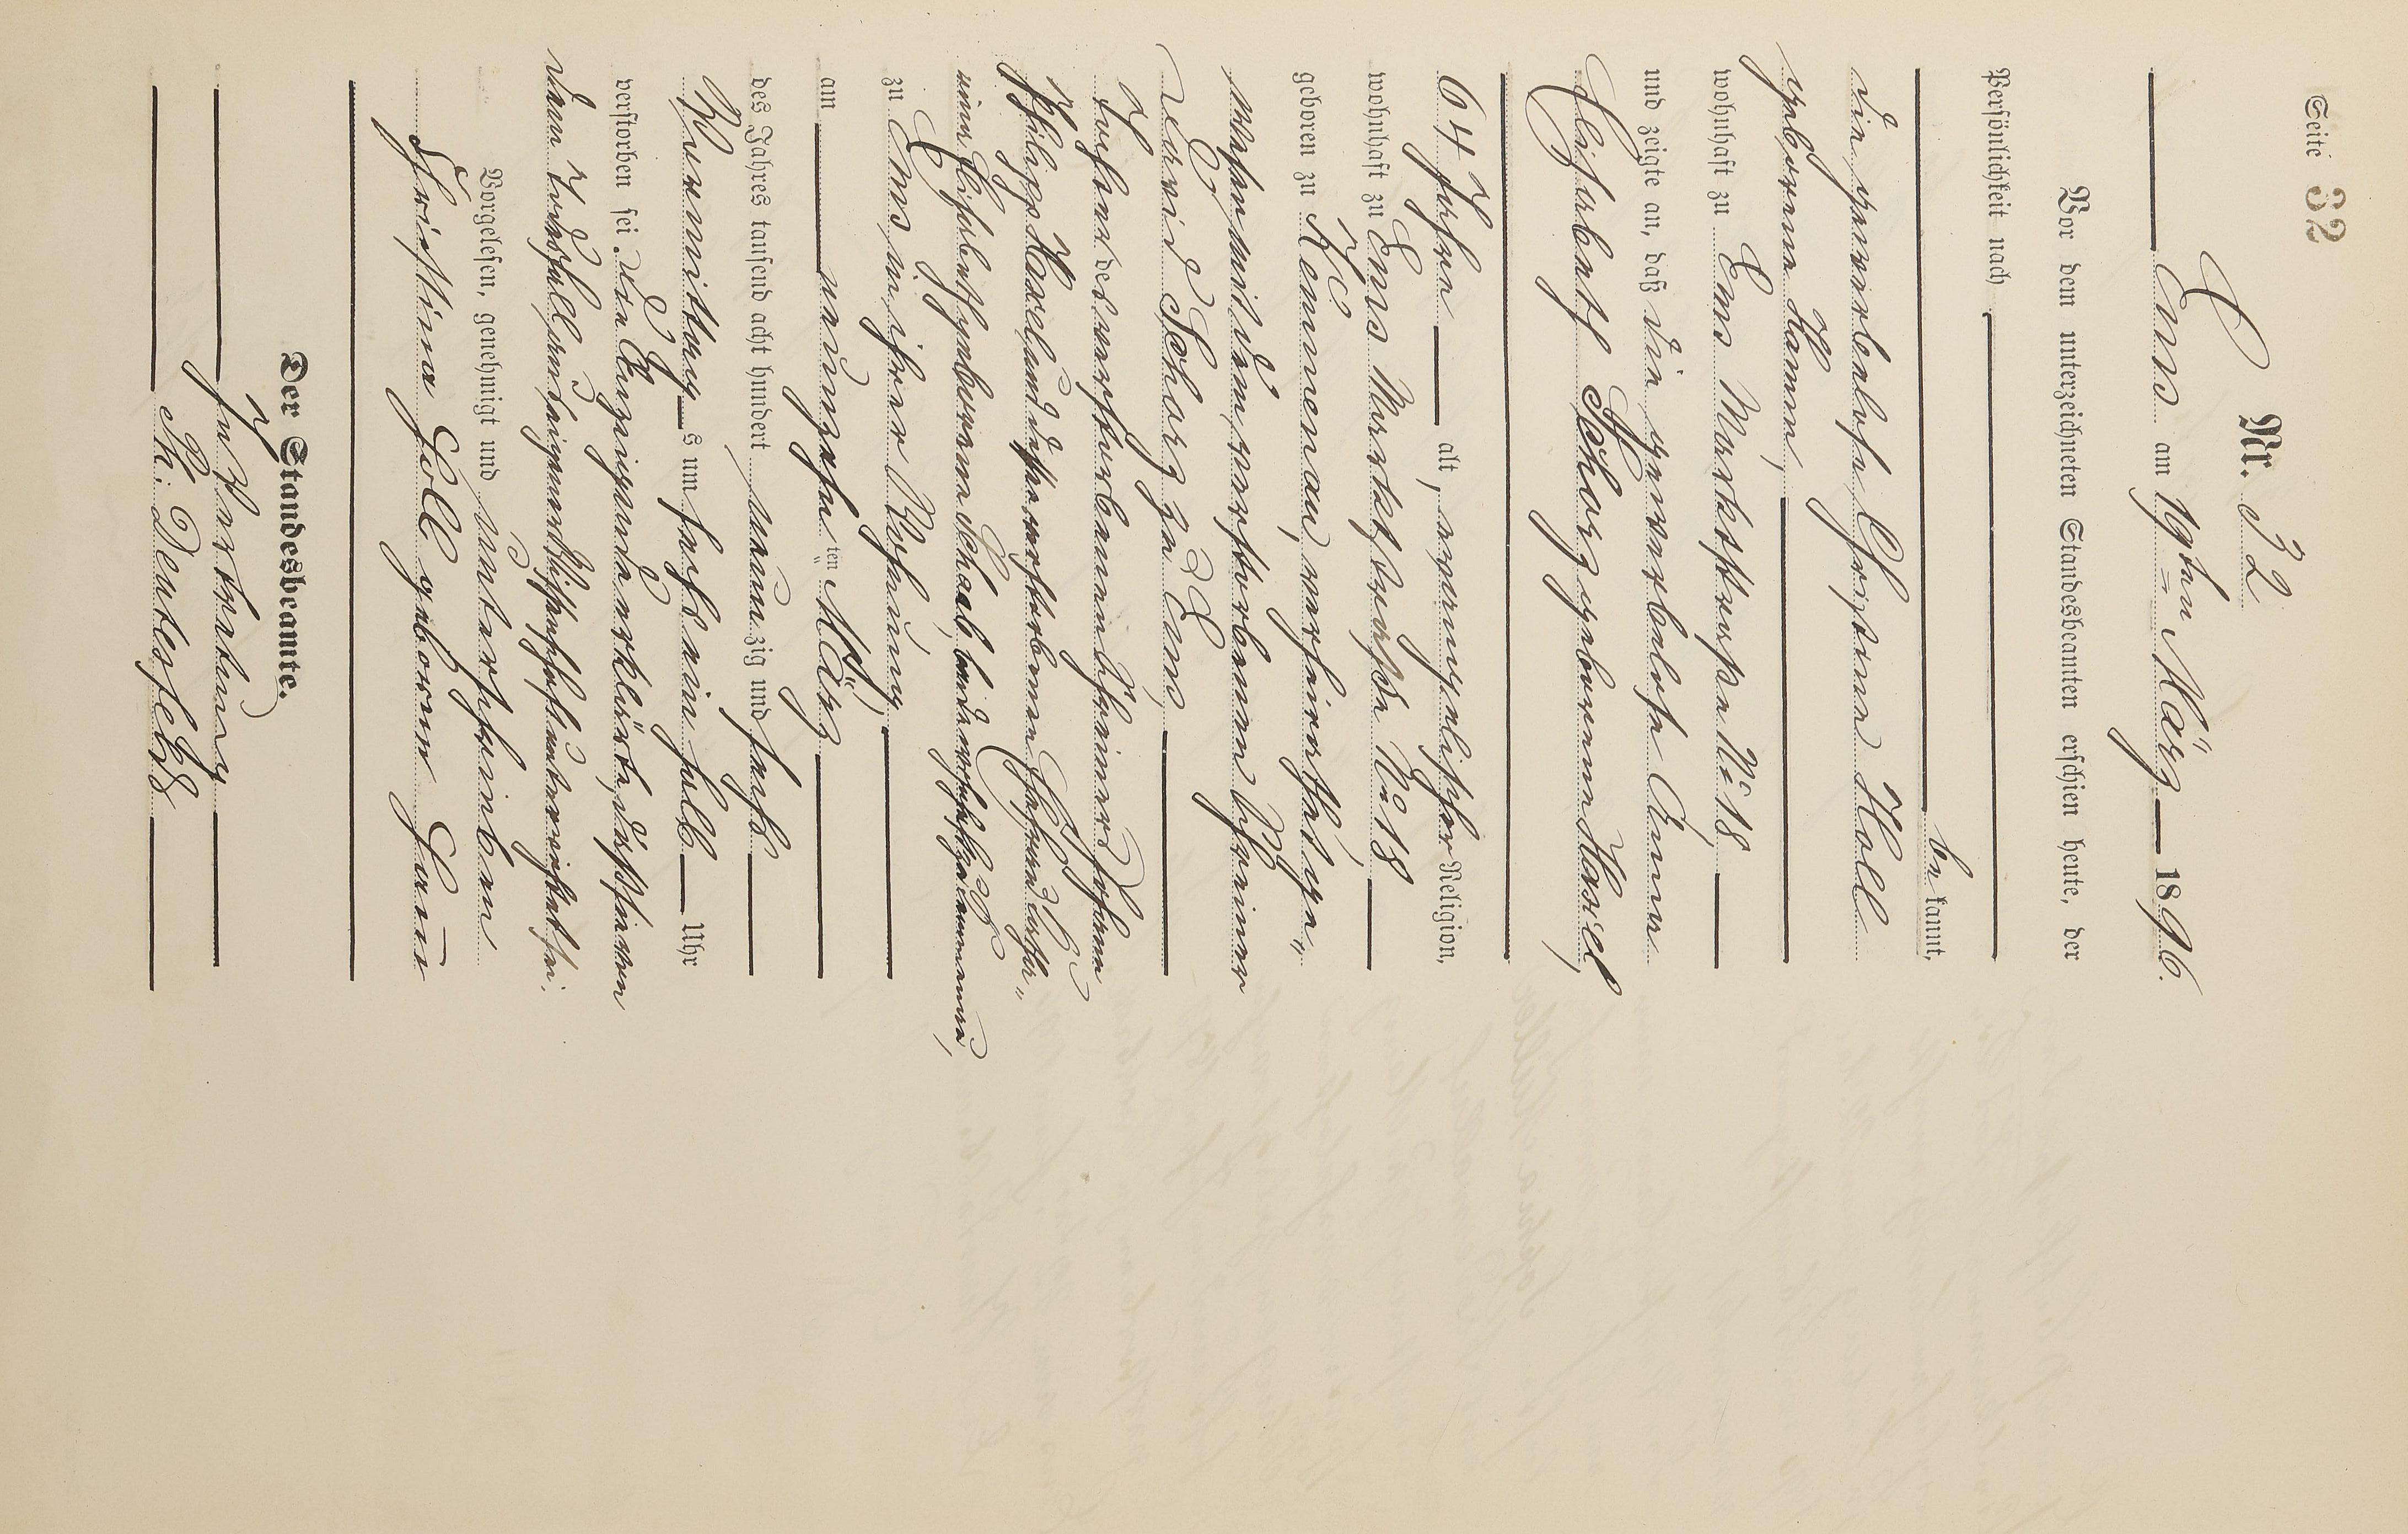 Seite 32
Nr. 32
Ems am 19ten März 1896.
Vor dem unterzeichneten Standesbeamten erschien heute, der
Persönlichkeit nach
bekannt,
die gewerbelose Christine Holl
geborene Hamm,
wohnhaft zu Ems Marktstraße No 18
und zeigte an, daß die gewerbelose Anna
Elisabeth Scharz geborene Haxel,
64 Jahre alt, evangelischer Religion,
wohnhaft zu Ems Marktstraße No 18,
geboren zu Kemmenau, verheirathet ge-
wesen mit dem verstorbenen Schreiner
David Scharz zu Ems,
Tochter der verstorbenen Schreiners Johann
Philipp Haxel und dessen verstorbenen Ehefrau
Elisabeth geborene Schaab, beide wohnhaft zu Kemmenau,
zu Ems, in ihrer Wohnung,
am neunzehnten März
des Jahres tausend acht hundert neunzig und sechs
Vormittags um sechs ein halb Uhr
verstorben sei. Die Anzeigende erklärte, daß sie von
dem Todesfall aus eigener Wissenschaft unterrichtet sei.
Vorgelesen, genehmigt und unterschrieben
Christina Holl geboren Hamm
Der Standesbeamte.
In Vertretung
Ph. Deutesfeld